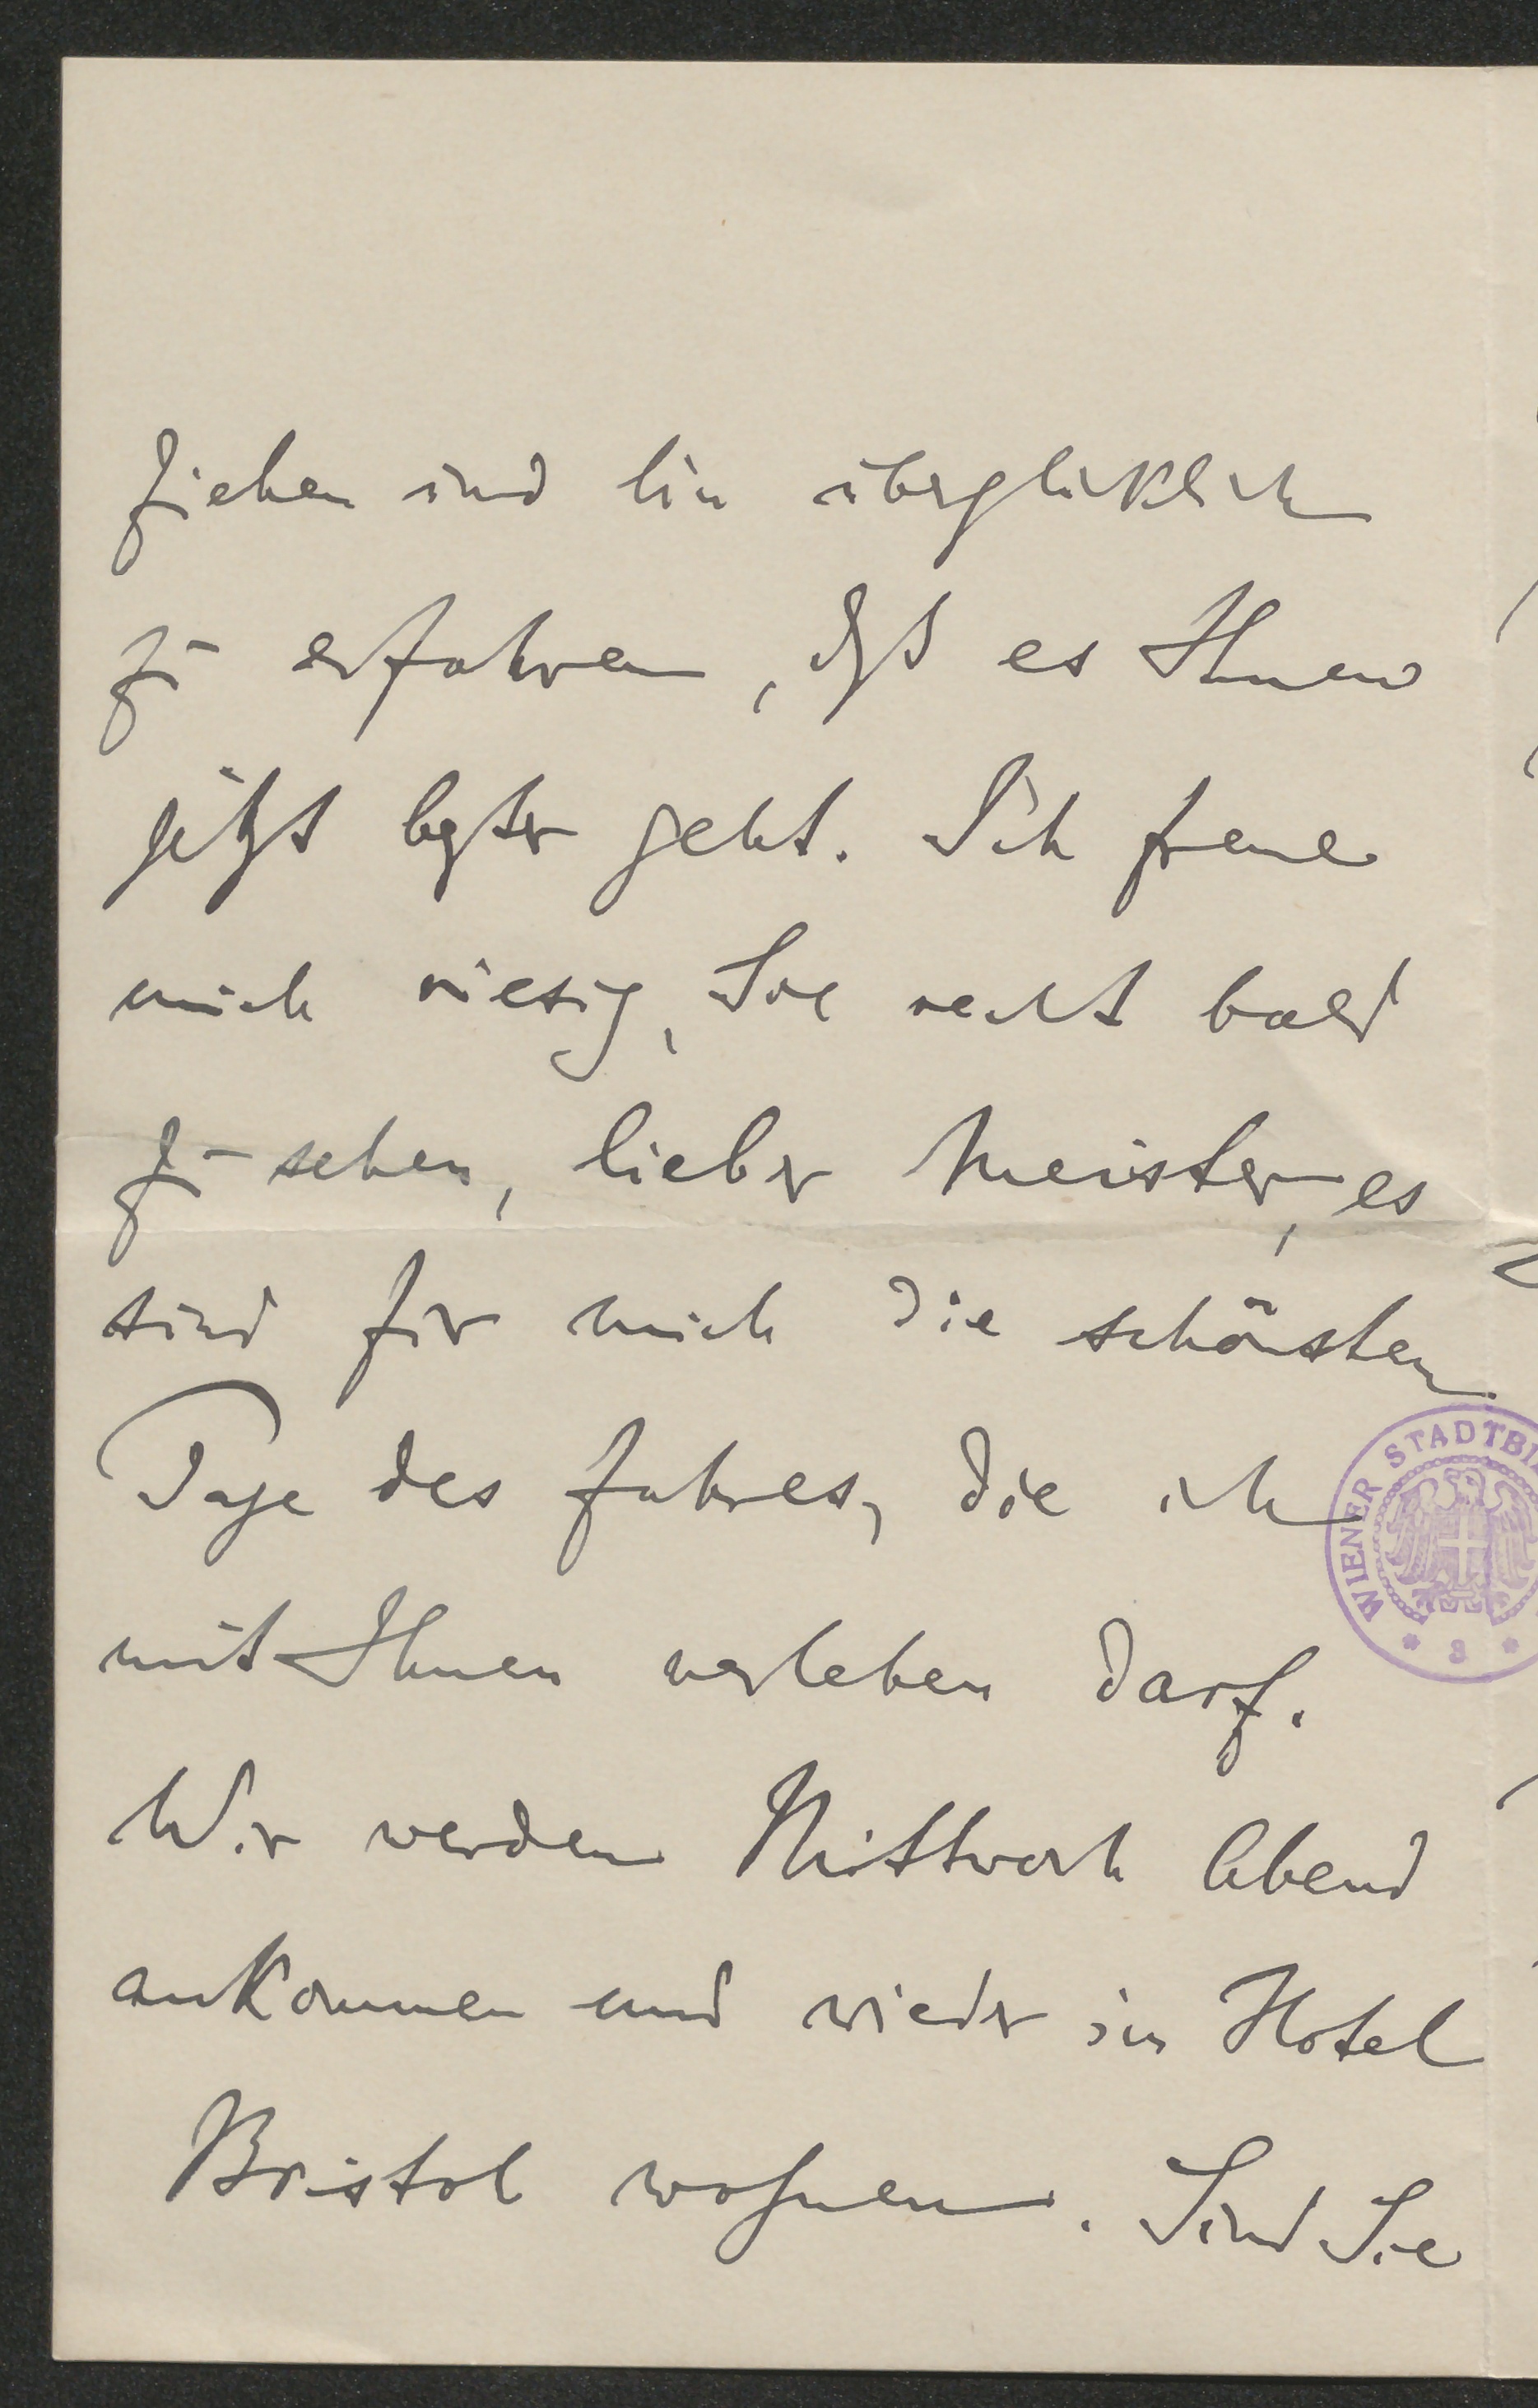 ziehen und bin überglücklich
zu erfahren, daß es Ihnen
jetzt besser geht. Ich freue
mich riesig, Sie recht bald
zu sehen, lieber Meister, es
sind für mich die schönsten
Tage des Jahres, die ich
mit Ihnen verleben darf.
Wir werden Mittwoch Abend
ankommen und wieder im Hotel
Bristol wohnen. Sind Sie
WIENER STADTBI
* 3 *